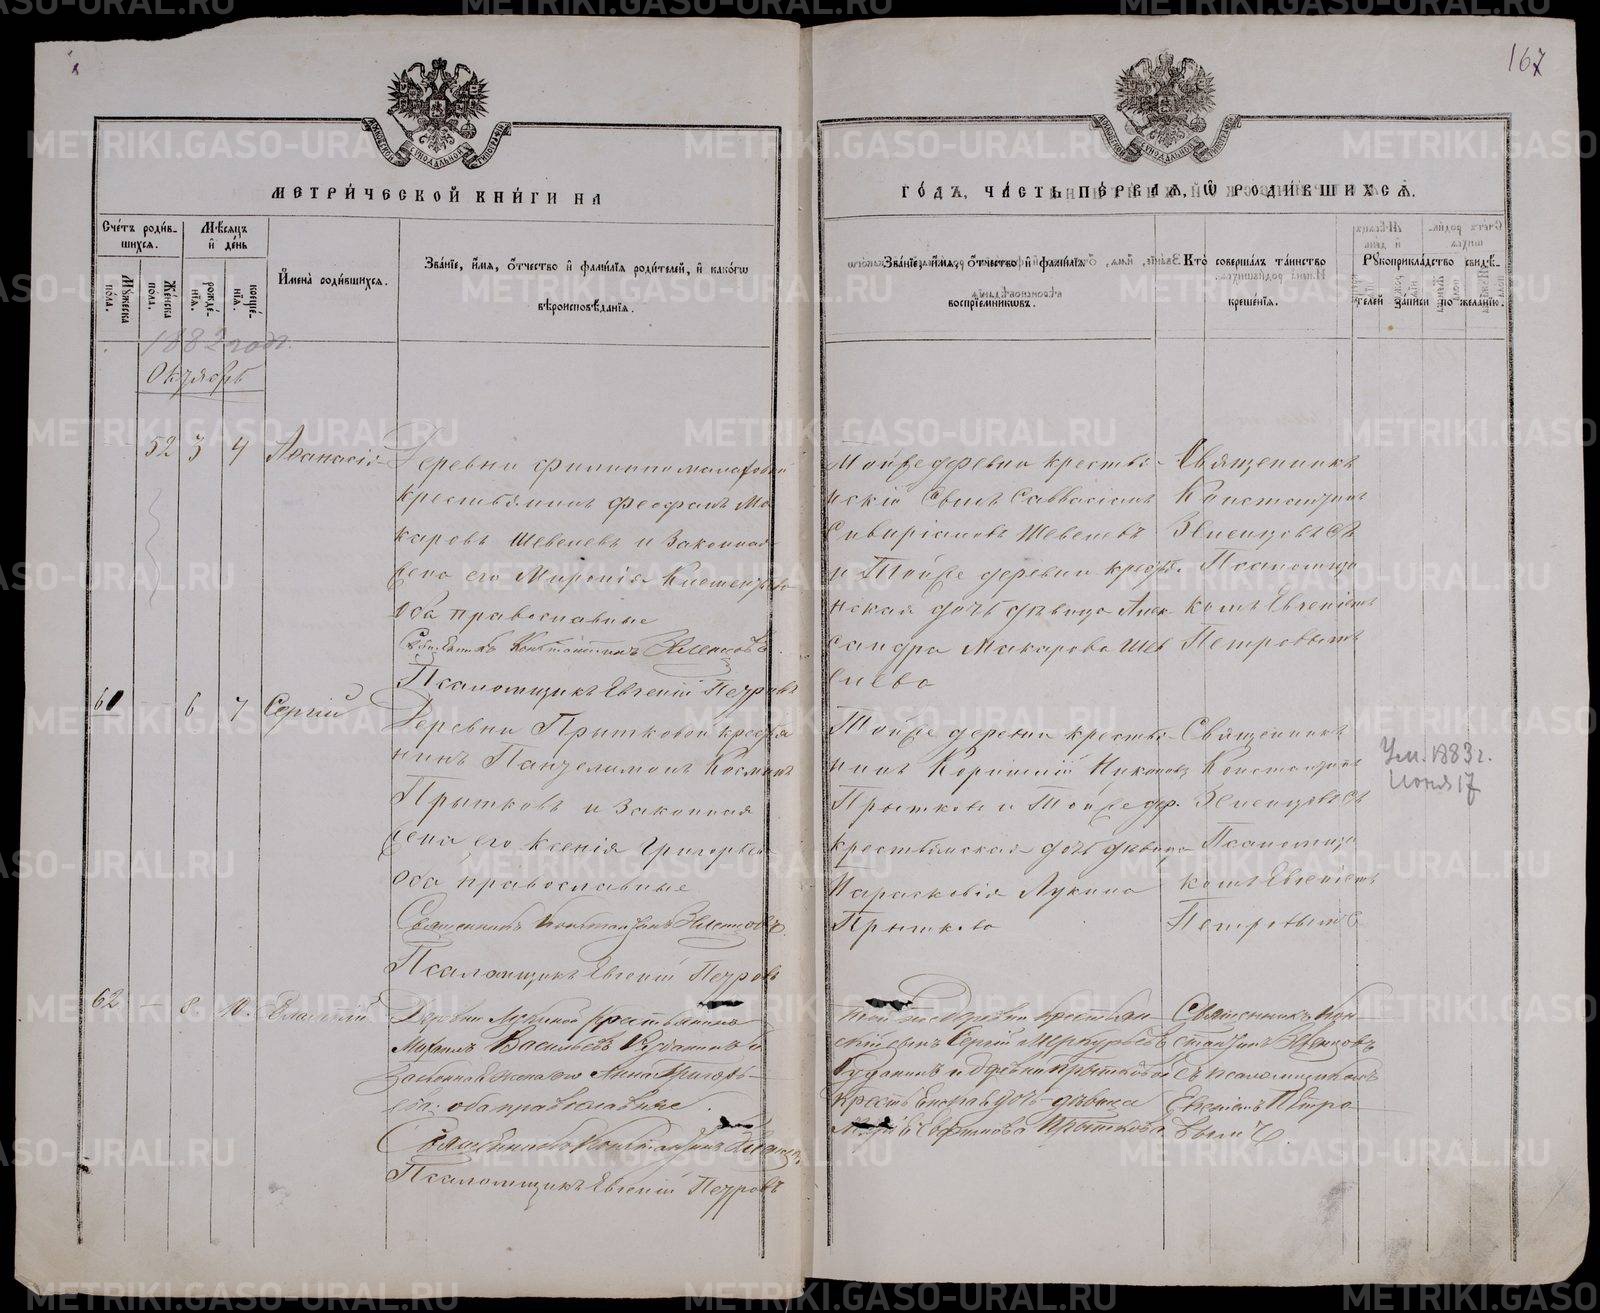 167
МЕТРИ́ЧЕСКОЙ КНИ́ГИ НА
ГО́ДЪ, ЧА́СТЬ ПЕ́РВАЯ, Ѡ҆ РОДИ́ВШИХСЯ.
Сче́тъ роди́вшихся.
Мꙋ́жеска по́ла.
Же́нска по́ла.
Мѣ́сяцъ и҆ де́нь
рожде́нїѧ.
креще́нїѧ.
И҆мена̀ роди́вшихся.
Зва́нїе, и҆́мѧ, ѻ҆́тчество и҆ фамі́лїѧ роди́телей, и҆ како́гѡ вѣроисповѣ́данїѧ.
Зва́нїе, и҆́мѧ, ѻ҆́тчество и҆ фамі́лїѧ воспрїе́мниковъ.
Кто̀ соверша́лъ та́инство креще́нїѧ.
Рꙋкоприкла́дство свидѣ́телей за́писи по жела́нїю.
1882 годъ.
Октябрь
52 3 4 Афанасія
Деревни Филиппомалаховой
крестьянинъ Феофанъ Ма
каровъ Шевелевъ и законная
жена его Миронія Климентьева
оба православные
Священникъ Константинъ
Псаломщикъ Евгеній Петровъ
Той же деревни крестья
нскій сынъ Савватій
Шевелевъ
и той же деревни кресть
нская дочь девица Алек
сандра Макарова Шев
елева
Священникъ
Константинъ
съ
Псаломщи
комъ Евгеніемъ
Петровымъ
61 – 6 7 Сергій
Деревни Прытковой кресть
нинъ Пантелимонъ Косминъ
Прытковъ и законная
жена его Ксенія Григорьева
оба православные
Священникъ Константинъ
Псаломщикъ Евгеній Петровъ
Той же деревни кресть
нинъ Корнилій Никоновъ
Прытковъ и той же дер.
крестьянская дочь девица
Параскевія Лукина
Прыткова
Священникъ
Константинъ
съ
Псаломщи
комъ Евгеніемъ
Петровымъ
Ум. 1883 г.
Июня 17
62 – 8 10.
Деревни крестьянинъ
Михаилъ Васильевъ и
законная жена его Анна Григорь
ева; оба православные.
Священникъ Константинъ
Псаломщикъ Евгеній Петровъ
Той же деревни крестьян
скій сынъ Сергій Меркурьевъ
и деревни Прытковой
дочь девица
Прыткова
Священникъ Кон
стантинъ
съ псаломщикомъ
Евгеніемъ Петро
вымъ.
METRIKI.GASO-URAL.RU